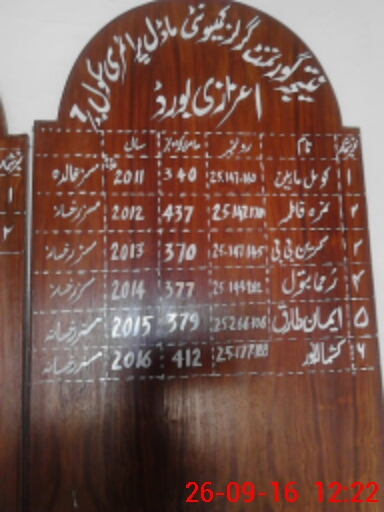 نتیجہ گورنمنٹ گرلز کمیونٹی ماڈل پرائمری سکول
اعزازی بورڈ
نمبر شمار نام رول نمبر حاصل کردہ نمبر سال
۱ کومل ماہین 25.147.160 340 2011 مسز خالدہ
۲ نمرہ فاطمہ 437 2012 مسز رخسانہ
۳ بی بی 25.147.145 370 2013 مسز رخسانہ
۴ بتول 377 2014 مسز رخسانہ
۵ ایمان طارق 25.266.106 379 2015 مسز رخسانہ
۶ 25.177.188 412 2016 مسز رخسانہ
۱
۲
26-09-16 12:22